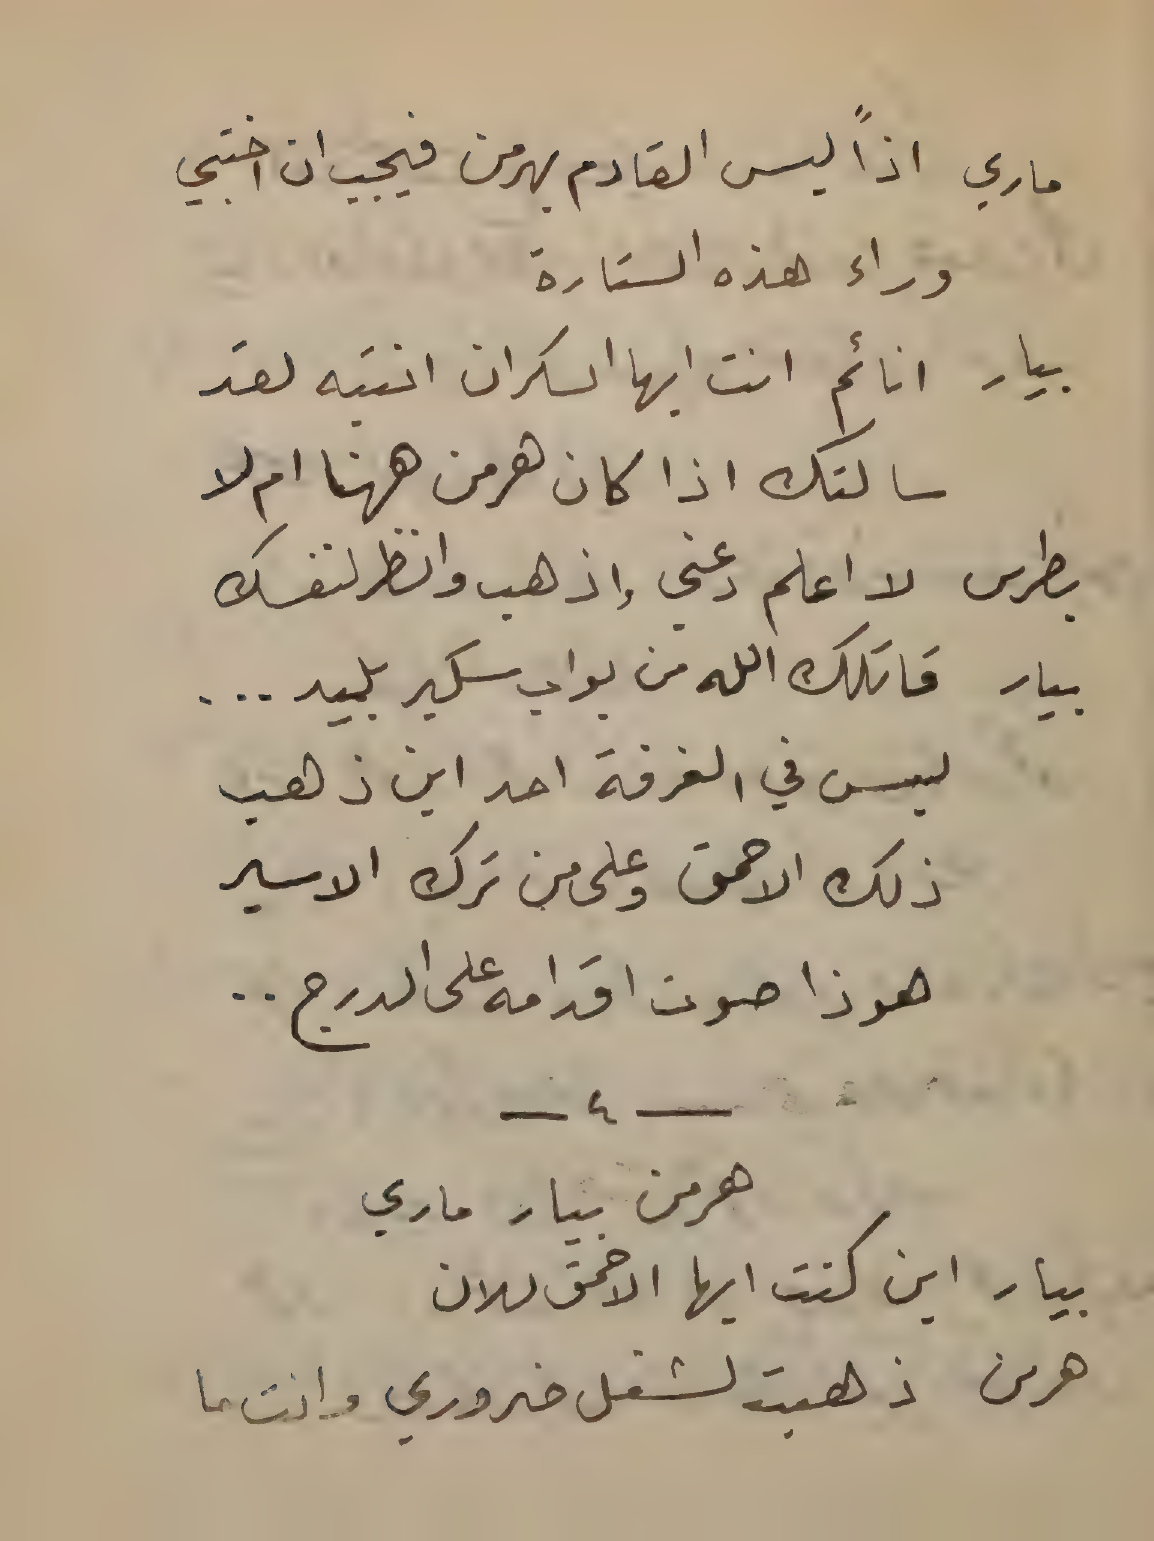 ماري اذاً ليس القادم بهرمن فيجب ان اختبي
وراء هذه الستارة
بيار انائم انت ايها السكران انتبه لقد
سالتك اذا كان هرمن ههنا ام لا
بطرس لا اعلم دعني واذهب وانظر لنفسك
بيار قاتلك الله من بواب سكير بليد ....
ليس في الغرفة احد اين ذهب
ذلك الاحمق وعلى من ترك الاسير
هوذا صوت اقدامه على الدرج ..
— ٤ —
هرمن بيار ماري
بيار اين كنت ايها الاحمق للان
هرمن ذهبت لشغل ضروري وانت ما